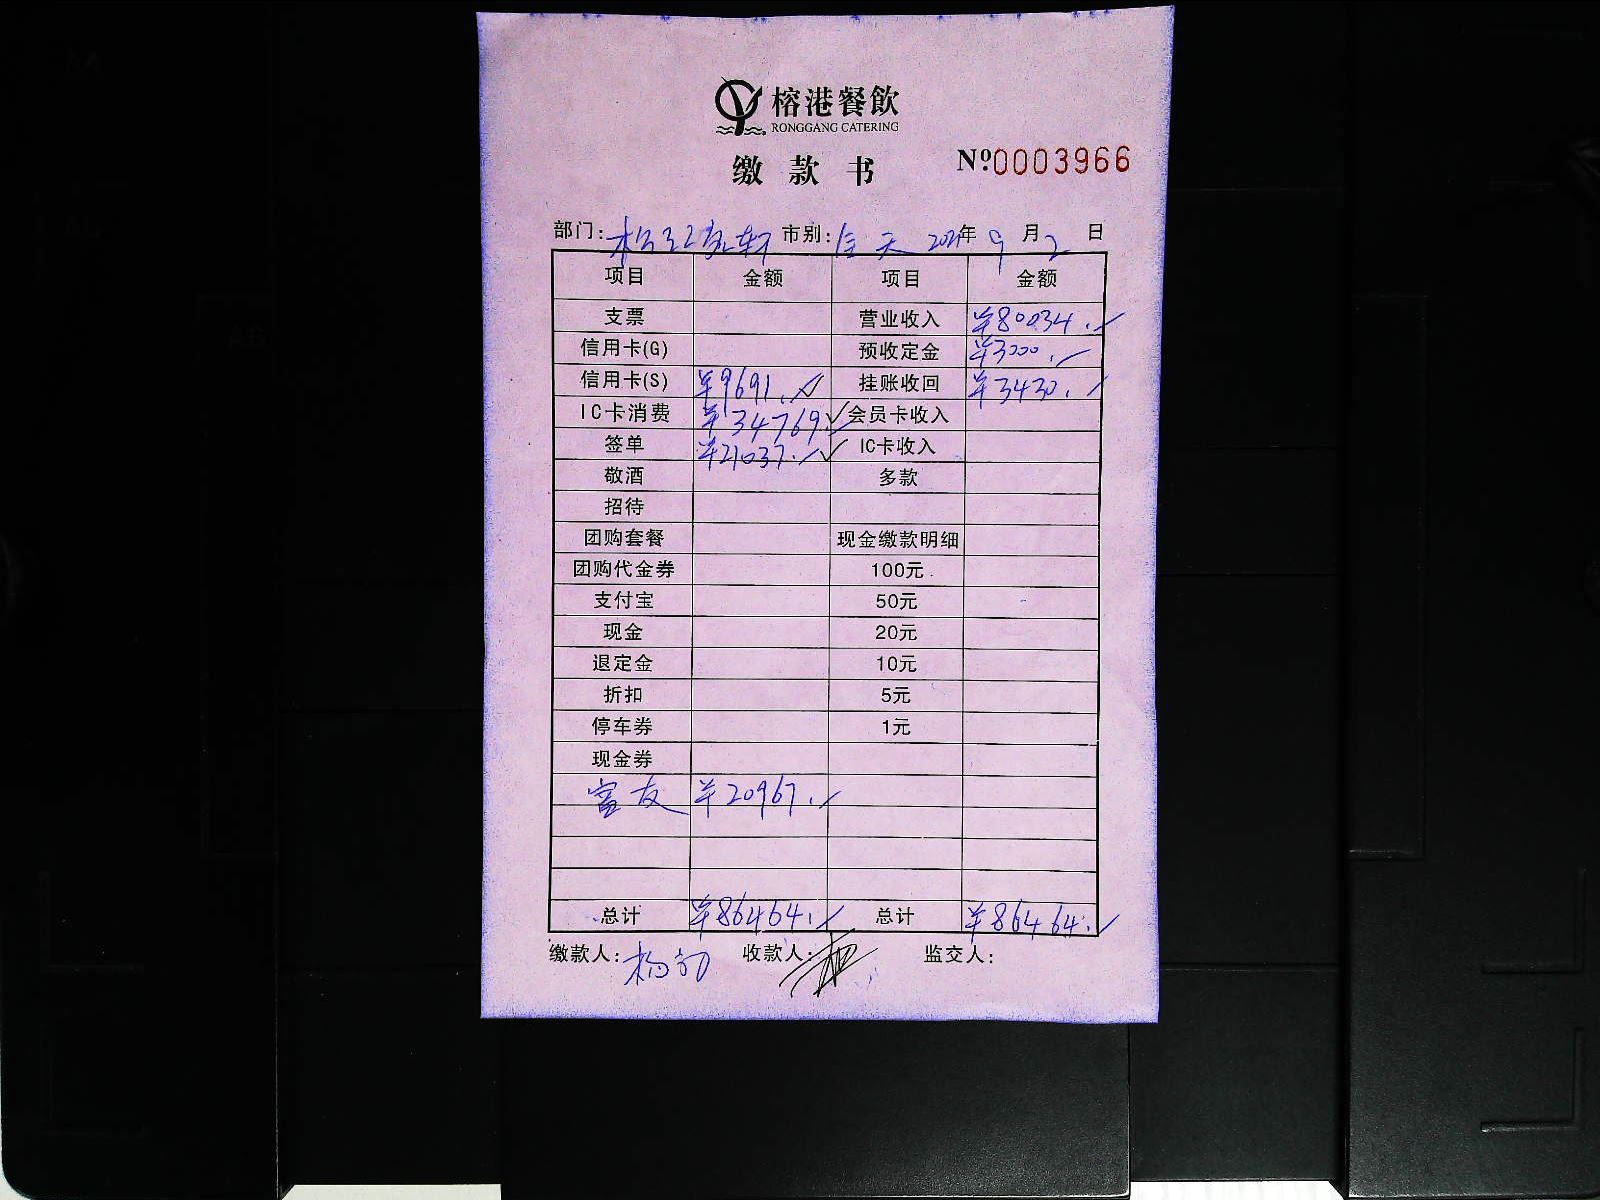 榕港餐飲
RONGGANG CATERING
缴款书
№0003966
部门: 市别:全天 2021年9月2日
项目 金额 项目 金额
支票 营业收入 ¥80034.
信用卡(G) 预收定金 ¥3000.
信用卡(S) ¥9691. 挂账收回 ¥3430.
IC卡消费 ¥34769. 会员卡收入
签单 ¥21037. IC卡收入
敬酒 多款
招待
团购套餐 现金缴款明细
团购代金券 100元
支付宝 50元
现金 20元
退定金 10元
折扣 5元
停车券 1元
现金券
富友 ¥20967.
总计 ¥86464. 总计 ¥86464.
缴款人: 收款人: 监交人: